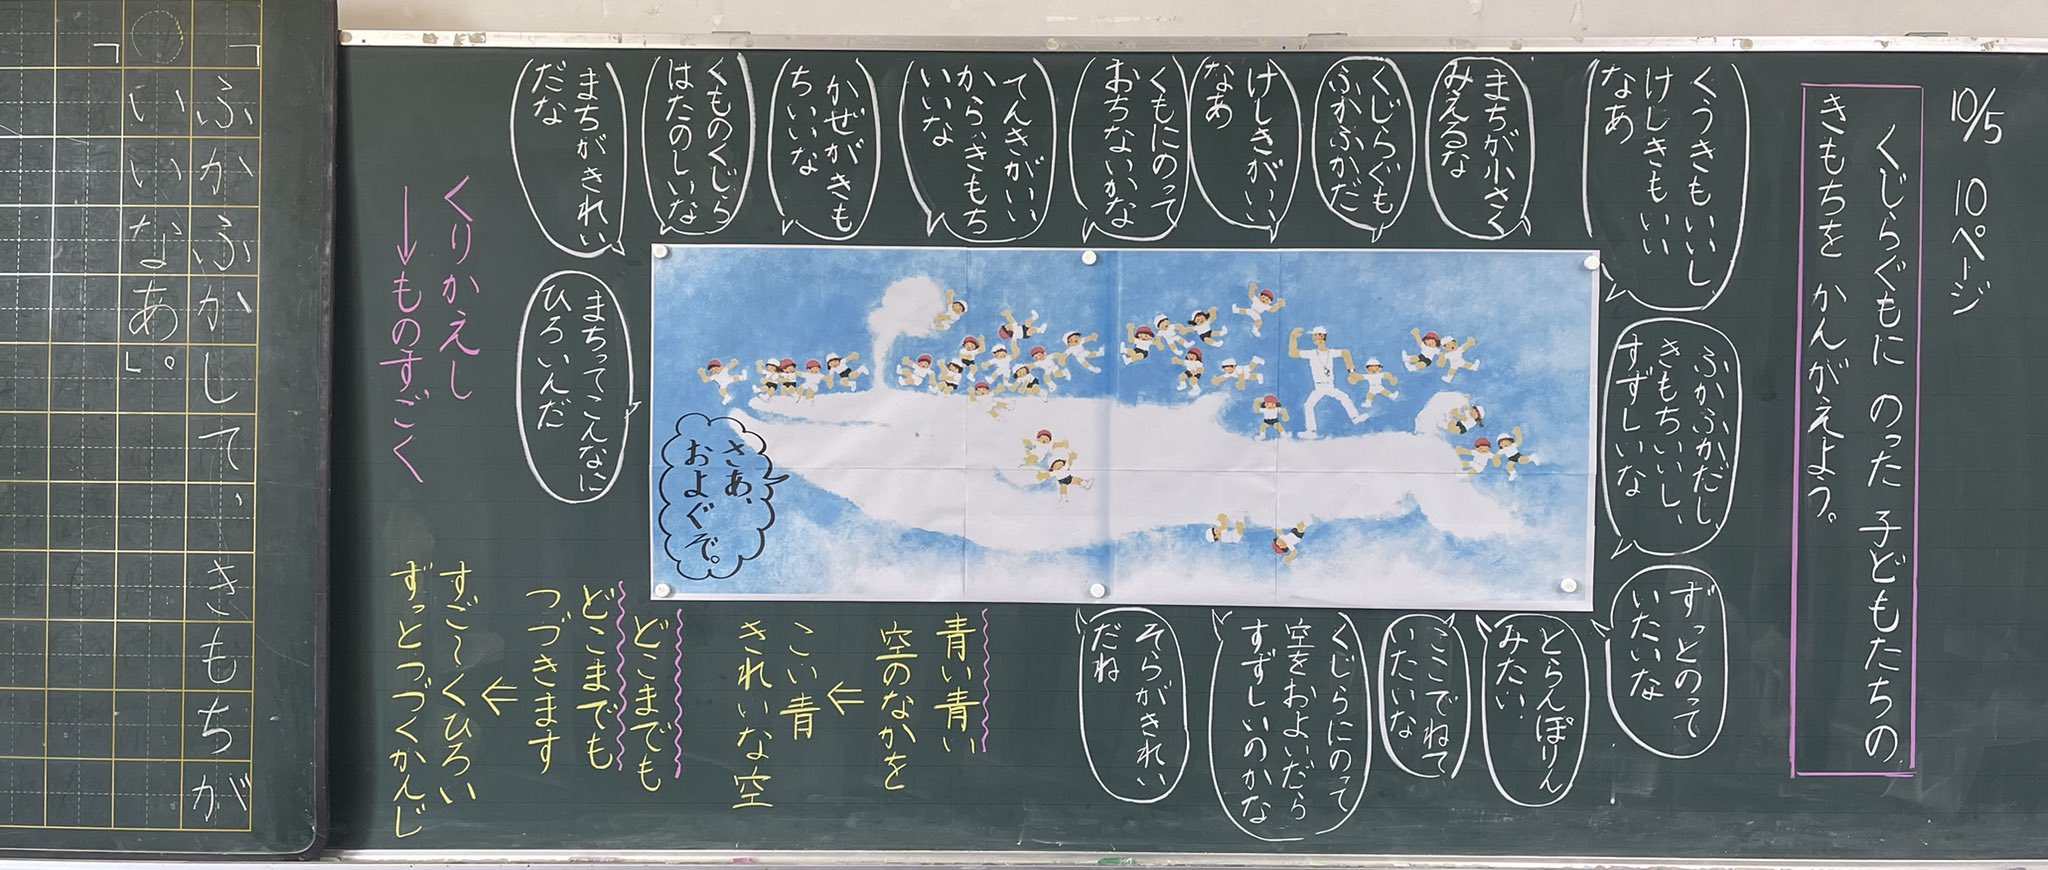 10/5 10ページ
くじらぐもに のった 子どもたちの
きもちを かんがえよう。
くうきもいいし
けしきもいい
なあ
ふかふかだし、
きもちいいし、
すずしいな
ずっとのって
いたいな
まちが小さく
みえるな
くじらぐも
ふかふかだ
けしきがいい
なあ
くもにのって
おちないかな
てんきがいい
から、きもち
いいな
かぜがきも
ちいいな
くものくじら
はたのしいな
まちがきれい
だな
まちってこんなに
ひろいんだ
さあ、
およぐぞ。
とらんぽりん
みたい
ここでねて
いたいな
くじらにのって
空をおよいだら
すずしいのかな
そらがきれい
だね
青い青い
空のなかを
←
こい青
きれいな空
どこまでも
どこまでも
つづきます
←
すご〜くひろい
ずっとつづくかんじ
くりかえし
→ものすごく
「ふかふかして、きもちが
いいなあ」。
「